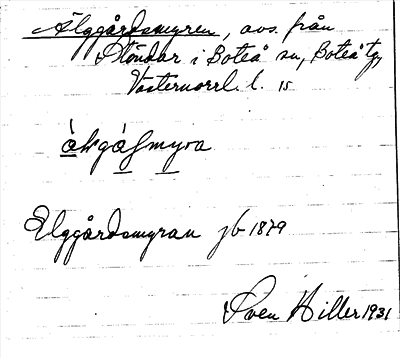 Älggårdsmyren, avs. från
Nöndar i Boteå sn, Boteå tg,
Västernorrl. l. 15
àkgáſmyra
Elggårdsmyran jb 1879
Sven Hiller 1931